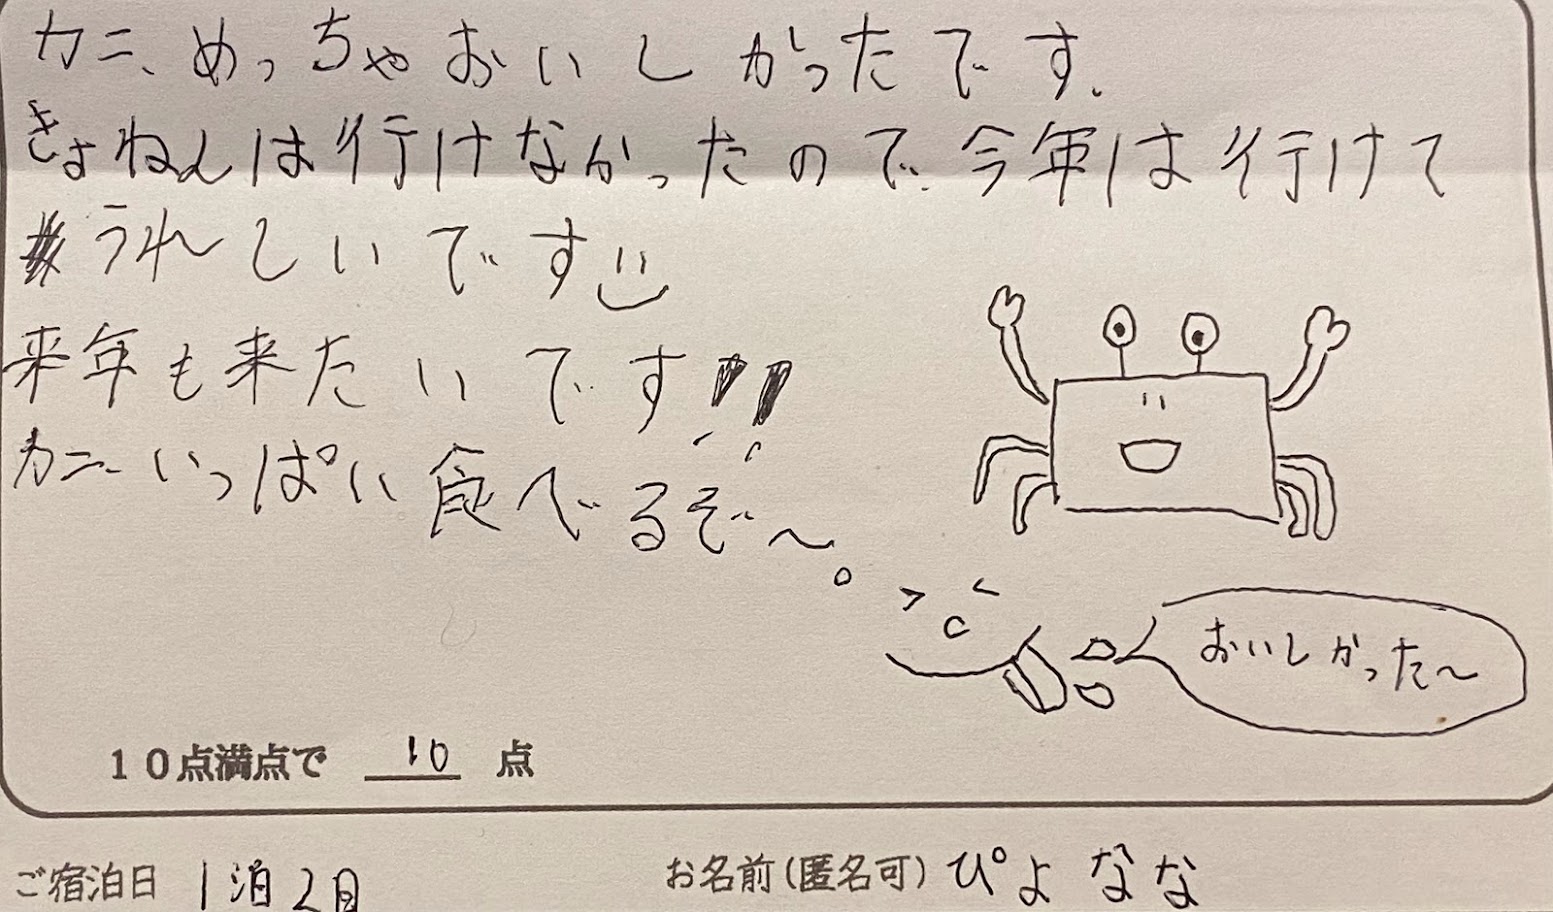 カニ、めっちゃおいしかったです。
きょねんは行けなかったので、今年は行けて
うれしいです
来年も来たいです!!
カニいっぱい食べるぞ〜。
おいしかった〜
10点満点で 10 点
ご宿泊日 1泊2日
お名前(匿名可) ぴよなな